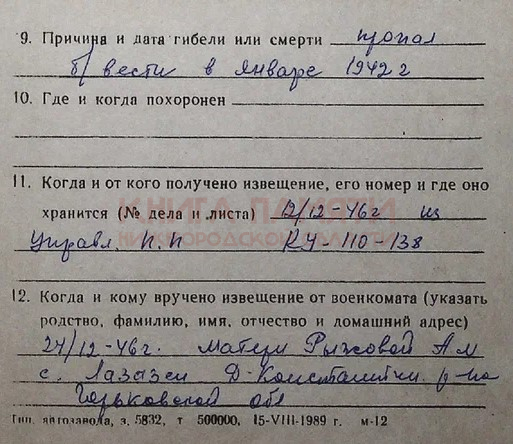 9. Причина и дата гибели или смерти пропал
б/вести в январе 1942 г
10. Где и когда похоронен
11. Когда и от кого получено извещение, его номер и где оно
КНИГА ПАМЯТИ
хранится (№ дела и листа) 12/12-46г из
НИЖЕГОРОДСКОЙ ОБЛАСТИ
Управл. П.П -110-138
12. Когда и кому вручено извещение от военкомата (указать
родство, фамилию, имя, отчество и домашний адрес)
24/12-46г. матери Рыжовой А М
с. Лазазеи Д-Константин. р-на
Горьковской обл
Тип. автозавода, з. 5832, т 500000, 15-VIII-1989 г. м-12